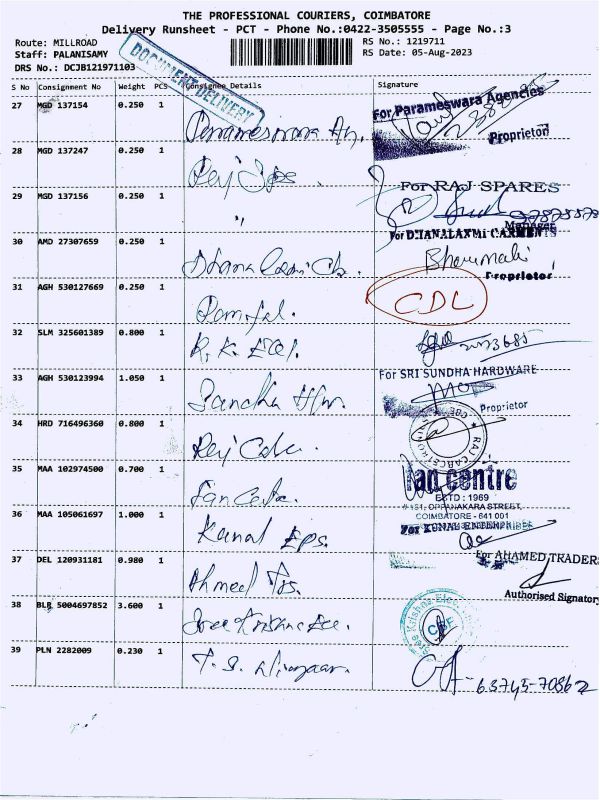 THE PROFESSIONAL COURIERS, COIMBATORE
Delivery Runsheet - PCT - Phone No.:0422-3505555 - Page No.:3
Route: MILLROAD
RS No.: 1219711
Staff: PALANISAMY
RS Date: 05-Aug-2023
DRS No.: DCJB121971103
DOCUMENT DELIVERY
S No Consignment No Weight PCS Consignee Details Signature
27 MGD 137154 0.250 1 Parameswara
For Parameswara Agencies
Proprietor
28 MGD 137247 0.250 1 Raj
For RAJ SPARES
29 MGD 137156 0.250 1 "
Manager
For DHANALAXMI GARMENTS
30 AMD 27307659 0.250 1
Proprietor
31 AGH 530127669 0.250 1
CDL
32 SLM 325601389 0.800 1 R. K.
33 AGH 530123994 1.050 1
For SRI SUNDHA HARDWARE
Proprietor
34 HRD 716496360 0.800 1 Raj
35 MAA 102974500 0.700 1
Fan centre
ESTD : 1969
OPPANAKARA STREET,
COIMBATORE - 641 001
36 MAA 105061697 1.000 1 Kunal Eps.
For KUNAL ENTERPRISES
37 DEL 120931181 0.980 1 Ahmed
For AHAMED TRADERS
Authorised Signatory
38 BLR 5004697852 3.600 1 Sree Krishna Ele.
39 PLN 2282009 0.230 1 T. S.
63745-70862